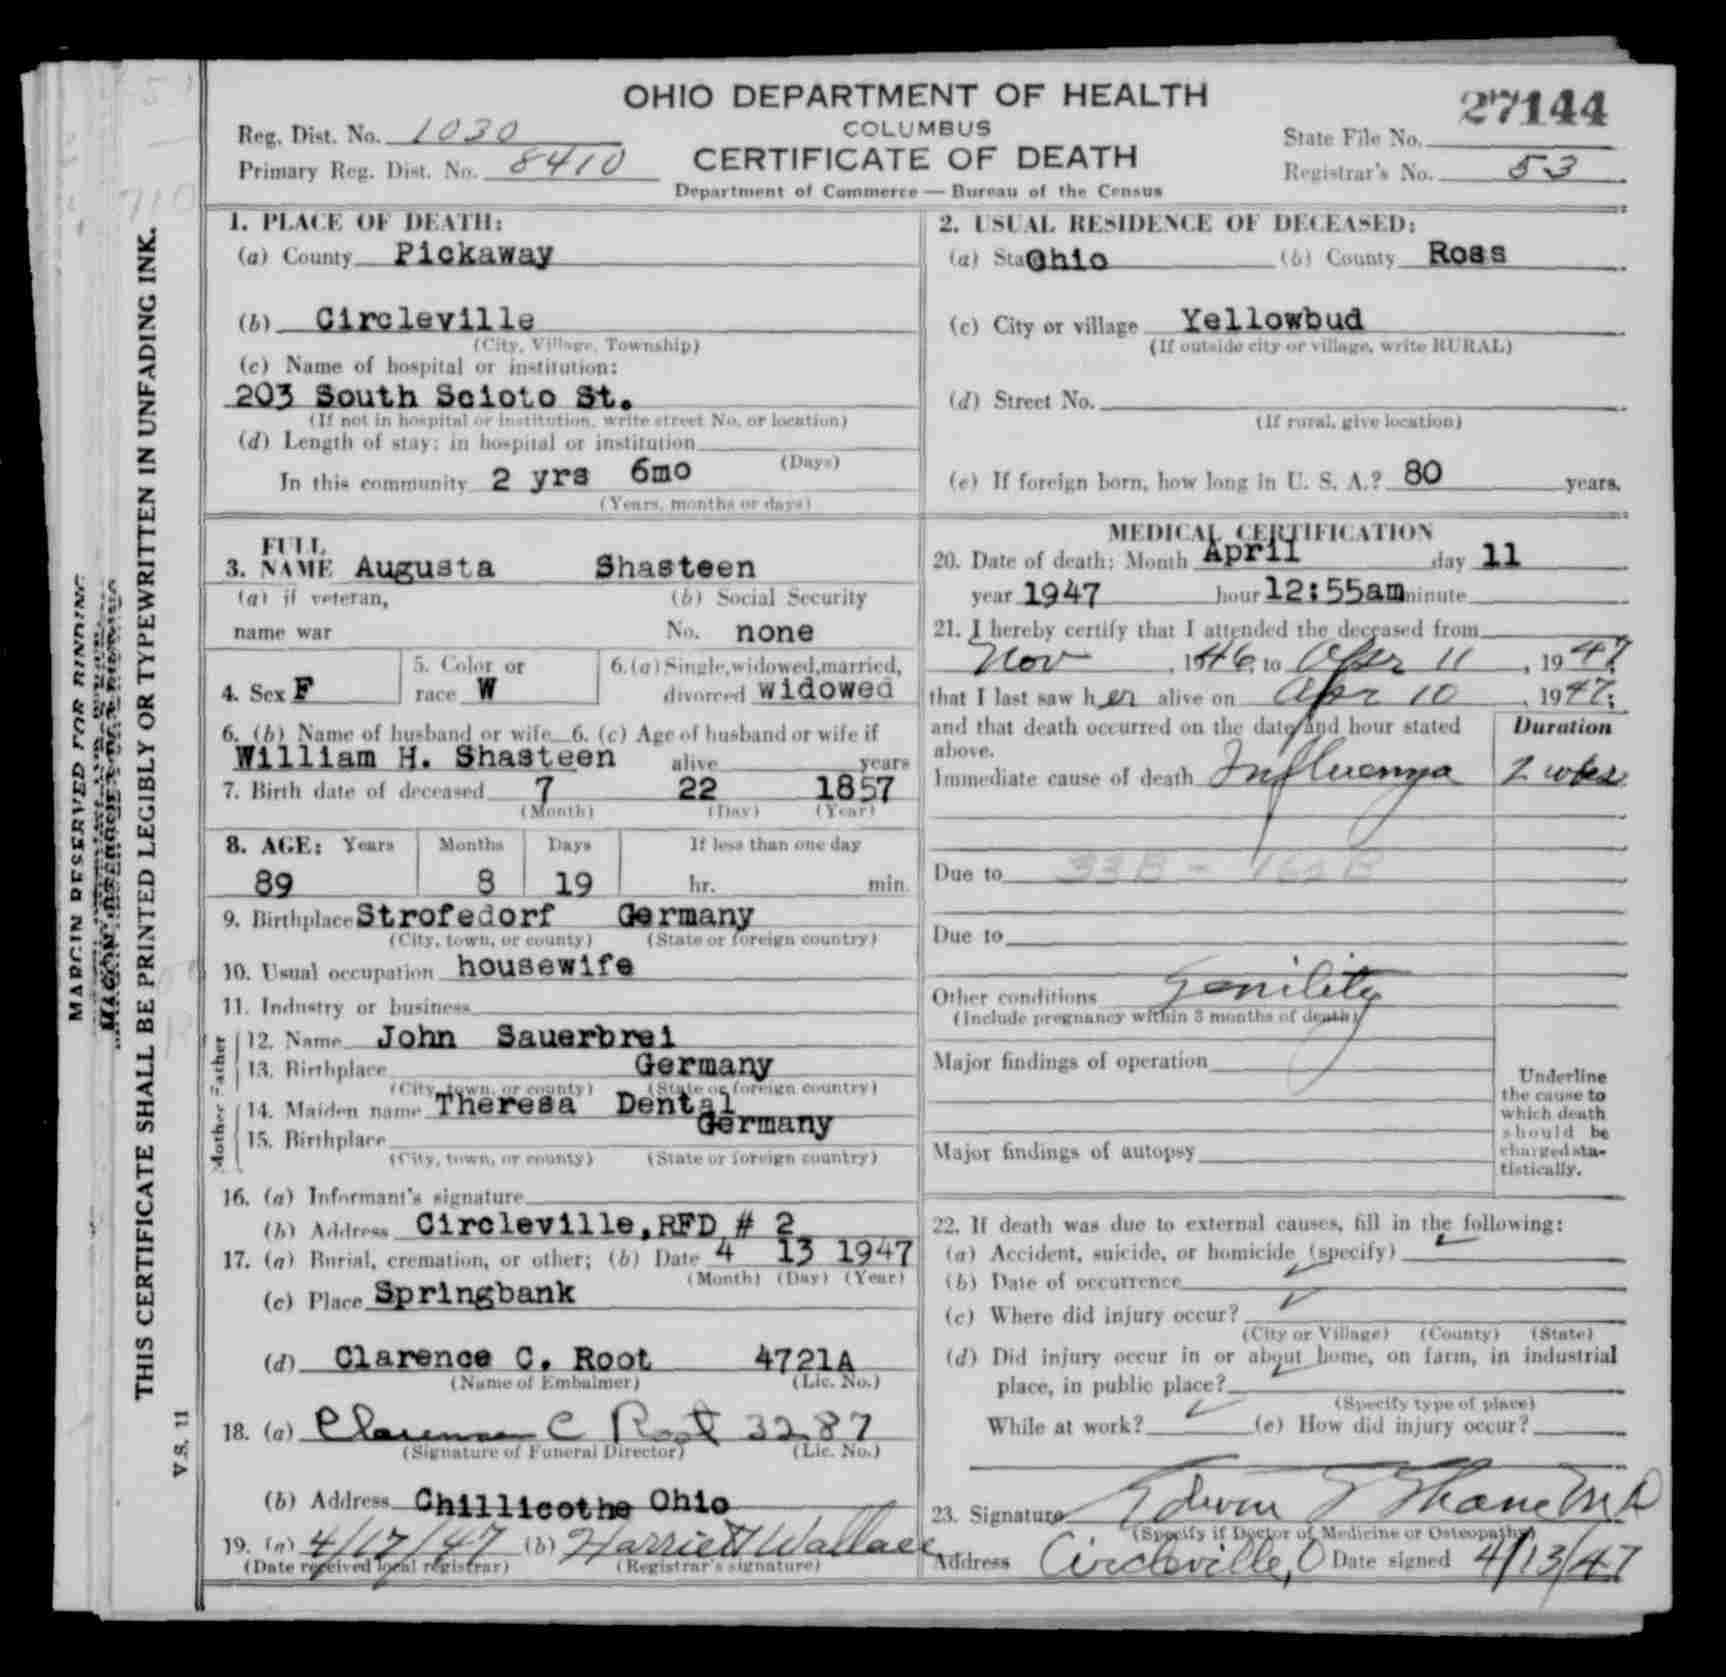 OHIO DEPARTMENT OF HEALTH
27144
Reg. Dist. No. 1030
COLUMBUS
State File No.
Primary Reg. Dist. No. 8410
CERTIFICATE OF DEATH
Registrar's No. 53
Department of Commerce — Bureau of the Census
1. PLACE OF DEATH:
(a) County Pickaway
(b) Circleville
(City, Village, Township)
(c) Name of hospital or institution:
203 South Scioto St.
(If not in hospital or institution, write street No. or location)
(d) Length of stay: in hospital or institution
(Days)
In this community 2 yrs 6mo
(Years, months or days)
2. USUAL RESIDENCE OF DECEASED:
(a) Sta Ohio (b) County Ross
(c) City or village Yellowbud
(If outside city or village, write RURAL)
(d) Street No.
(If rural, give location)
(e) If foreign born, how long in U. S. A.? 80 years.
3. FULL NAME Augusta Shasteen
(a) if veteran, (b) Social Security
name war No. none
4. Sex F
5. Color or race W
6. (a) Single, widowed, married, divorced widowed
6. (b) Name of husband or wife 6. (c) Age of husband or wife if
William H. Shasteen alive years
7. Birth date of deceased 7 22 1857
(Month) (Day) (Year)
8. AGE: Years Months Days If less than one day
89 8 19 hr. min.
9. Birthplace Strofedorf Germany
(City, town, or county) (State or foreign country)
10. Usual occupation housewife
11. Industry or business
Father
12. Name John Sauerbrei
13. Birthplace Germany
(City, town, or county) (State or foreign country)
Mother
14. Maiden name Theresa Dental
15. Birthplace Germany
(City, town, or county) (State or foreign country)
16. (a) Informant's signature
(b) Address Circleville, RFD # 2
17. (a) Burial, cremation, or other; (b) Date 4 13 1947
(Month) (Day) (Year)
(c) Place Springbank
(d) Clarence C. Root 4721A
(Name of Embalmer) (Lic. No.)
18. (a) Clarence C Root 3287
(Signature of Funeral Director) (Lic. No.)
(b) Address Chillicothe Ohio
19. (a) 4/17/47 (b) Harriet Wallace
(Date received local registrar) (Registrar's signature)
MEDICAL CERTIFICATION
20. Date of death: Month April day 11
year 1947 hour 12:55am minute
21. I hereby certify that I attended the deceased from
Nov, 1946, to Apr 11, 1947
that I last saw her alive on Apr 10, 1947;
and that death occurred on the date and hour stated above.
Duration
Immediate cause of death Influenza 2 wks
Due to 33B -
Due to
Other conditions Senility
(Include pregnancy within 3 months of death)
Major findings of operation
Major findings of autopsy
Underline
the cause to
which death
should be
charged sta-
tistically.
22. If death was due to external causes, fill in the following:
(a) Accident, suicide, or homicide (specify)
(b) Date of occurrence
(c) Where did injury occur?
(City or Village) (County) (State)
(d) Did injury occur in or about home, on farm, in industrial
place, in public place?
(Specify type of place)
While at work? (e) How did injury occur?
23. Signature Edwin S Shane M D
(Specify if Doctor of Medicine or Osteopathy)
Address Circleville, O Date signed 4/13/47
MARGIN RESERVED FOR BINDING
THIS CERTIFICATE SHALL BE PRINTED LEGIBLY OR TYPEWRITTEN IN UNFADING INK.
V.S. 11